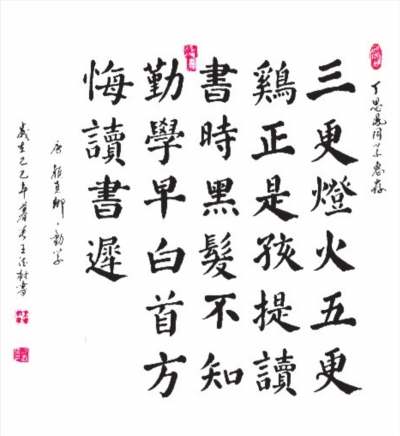 丁思同学惠存
三更燈火五更
鷄正是孩提讀
書時黑髮不知
勤學早白首方
悔讀書遲
唐 顏真卿、勸学
歲在己巳年春王書